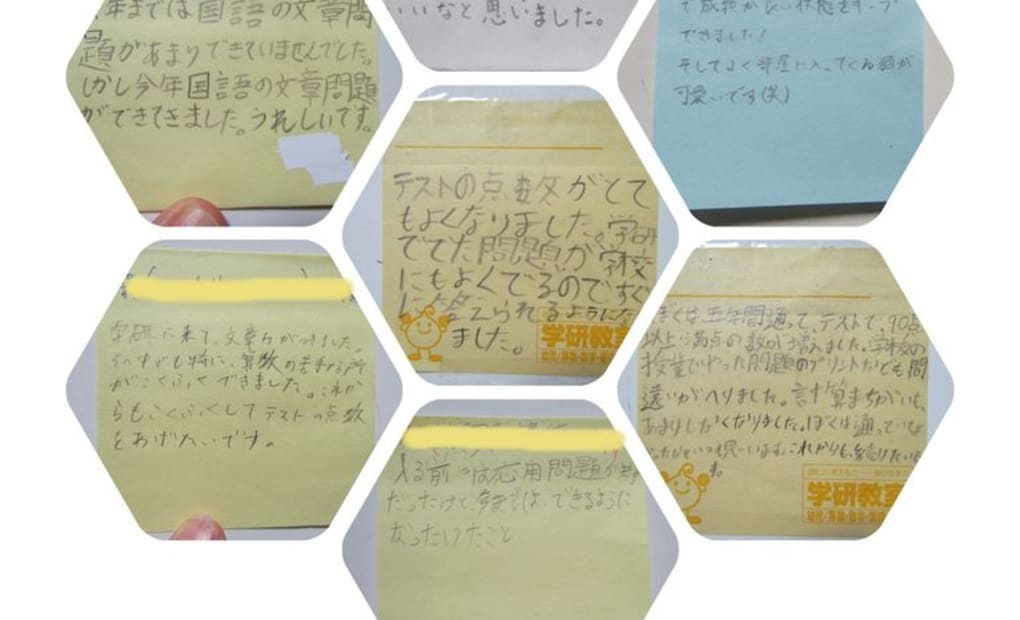 年までは国語の文章問
題があまりできていませんでした。
しかし今年国語の文章問題
ができてきました。うれしいです。
いいなと思いました。
で成績が良い状態をキープ
できました!
そしてよく部屋に入ってくる猫が
可愛いです(笑)
テストの点数がとて
もよくなりました。学研
ででた問題が学校
にもよくでるのですぐ
に答えられるようにな
りました。
学研教室
学研に来て、文章力がつきました。
その中でも特に、算数の苦手な所
がこくふくできました。これか
らもこくふくしてテストの点数
をあげたいです。
入る前は応用問題が
だったけど、今までは、できるように
なったこと
ぼくは五年間通って、テストで、90点
以上、満点の数が増えました。学校の
授業でやった問題のプリントなども間
違いがへりました。計算まちがいも、
あまりしなくなりました。ぼくは通っていな
これからも、続けたいで
す。
学研教室